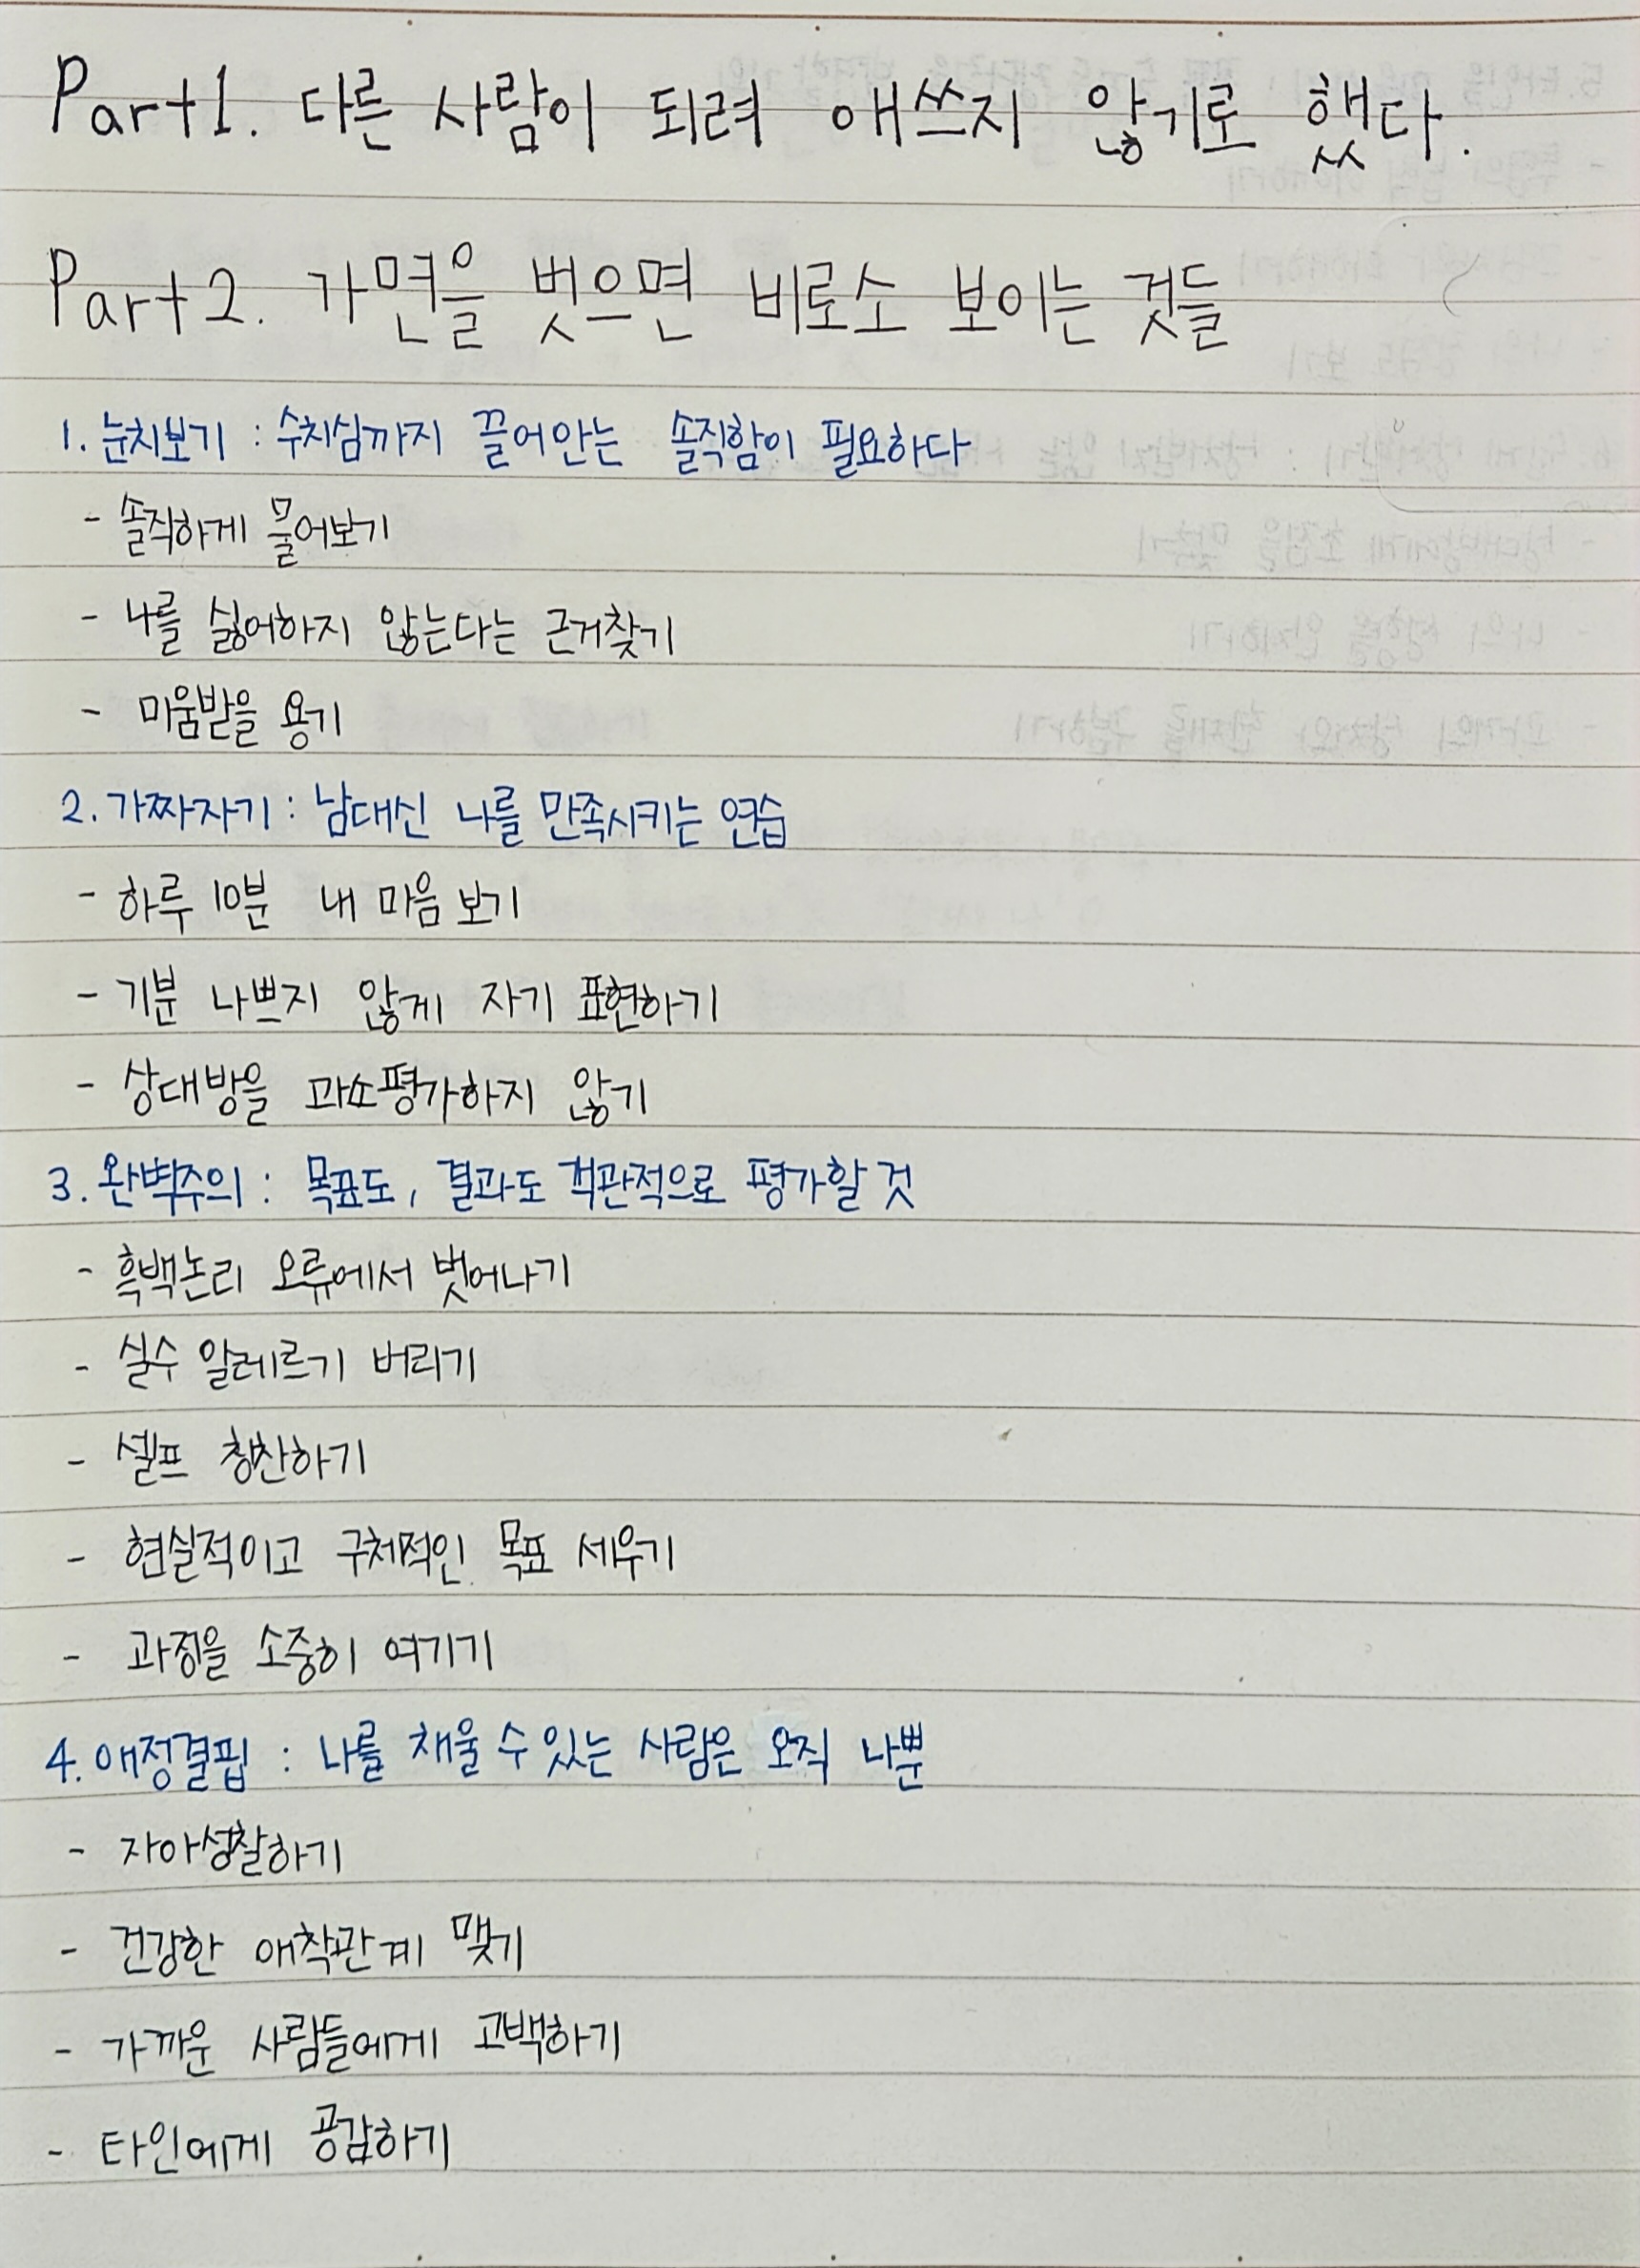 Part1. 다른 사람이 되려 애쓰지 않기로 했다.
Part2. 가면을 벗으면 비로소 보이는 것들
1. 눈치보기 : 수치심까지 끌어안는 솔직함이 필요하다
- 솔직하게 물어보기
- 나를 싫어하지 않는다는 근거찾기
- 미움받을 용기
2. 가짜자기 : 남대신 나를 만족시키는 연습
- 하루 10분 내 마음 보기
- 기분 나쁘지 않게 자기 표현하기
- 상대방을 과소평가하지 않기
3. 완벽주의 : 목표도, 결과도 객관적으로 평가할 것
- 흑백논리 오류에서 벗어나기
- 실수 알레르기 버리기
- 셀프 칭찬하기
- 현실적이고 구체적인 목표 세우기
- 과정을 소중히 여기기
4. 애정결핍 : 나를 채울 수 있는 사람은 오직 나뿐
- 자아성찰하기
- 건강한 애착관계 맺기
- 가까운 사람들에게 고백하기
- 타인에게 공감하기